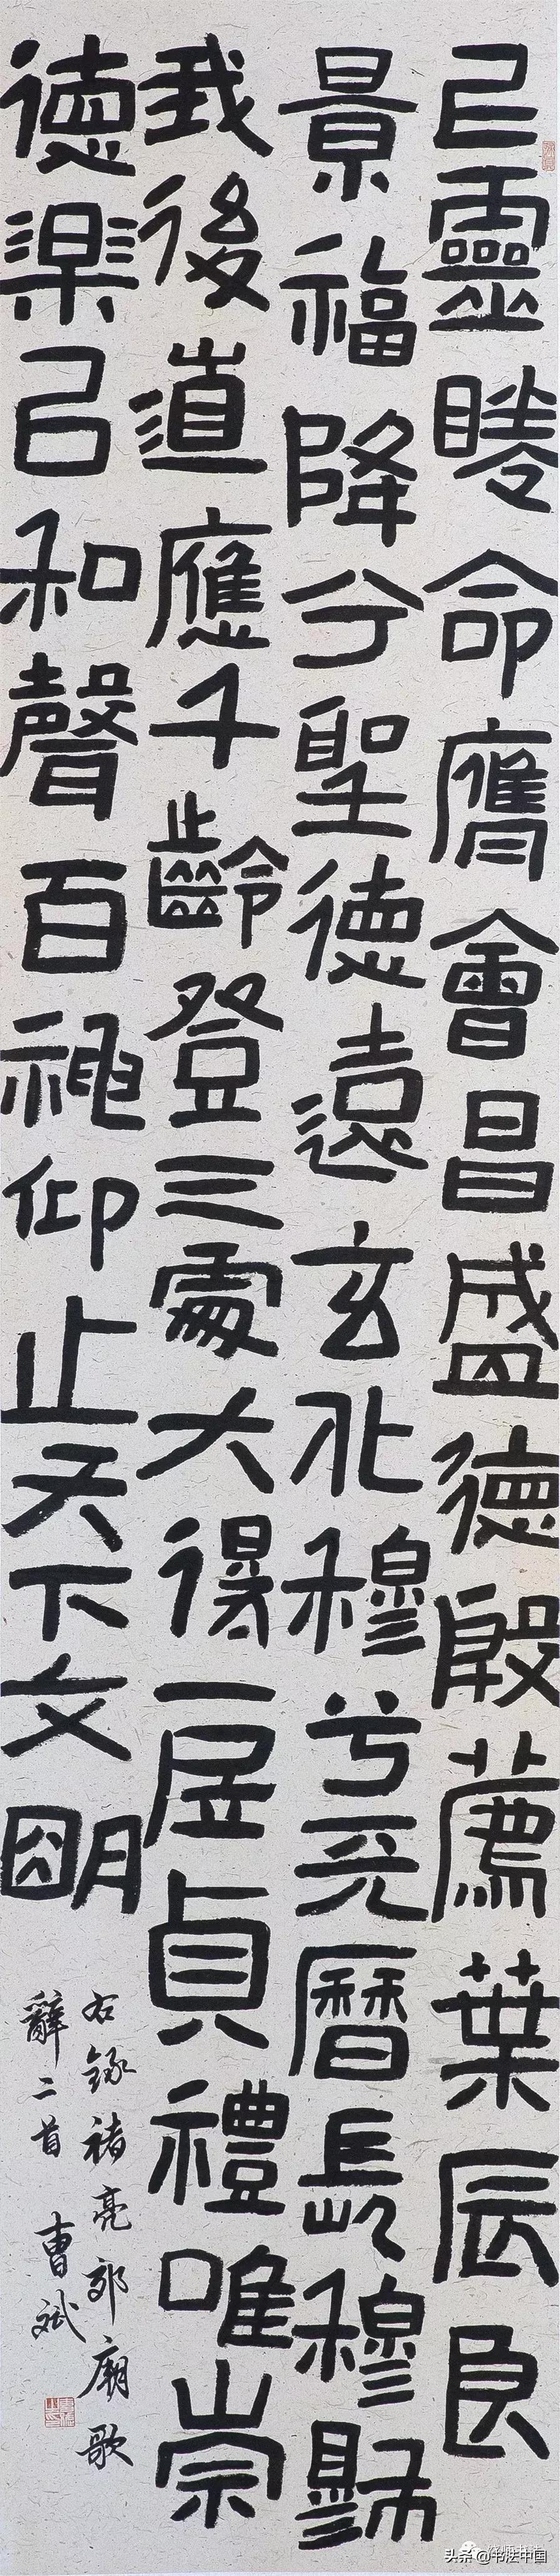 已靈睠命膺會昌盛德殷薦葉辰良
景福降兮聖德遠玄化穆兮天曆長穆穆
我後道應千齡登三處大得一居貞禮唯崇
德樂㠯和聲百神仰止天下文明
右錄褚亮郊廟歌
辭二首 曹斌
头条 @书法中国